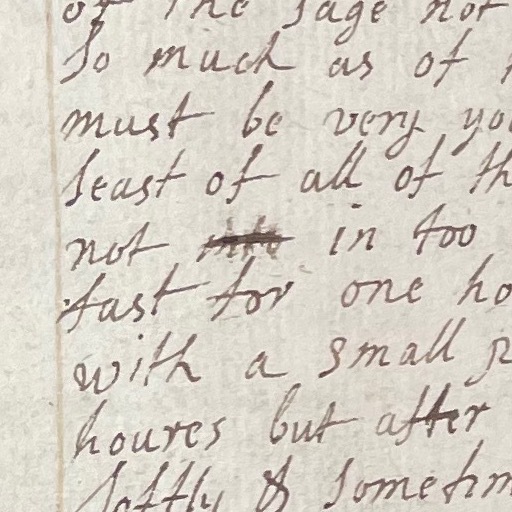 of the sage not
so much as of
must be very yo
least of all of th
not into in too
fast for one ho
with a small p
houres but after
softly & sometim